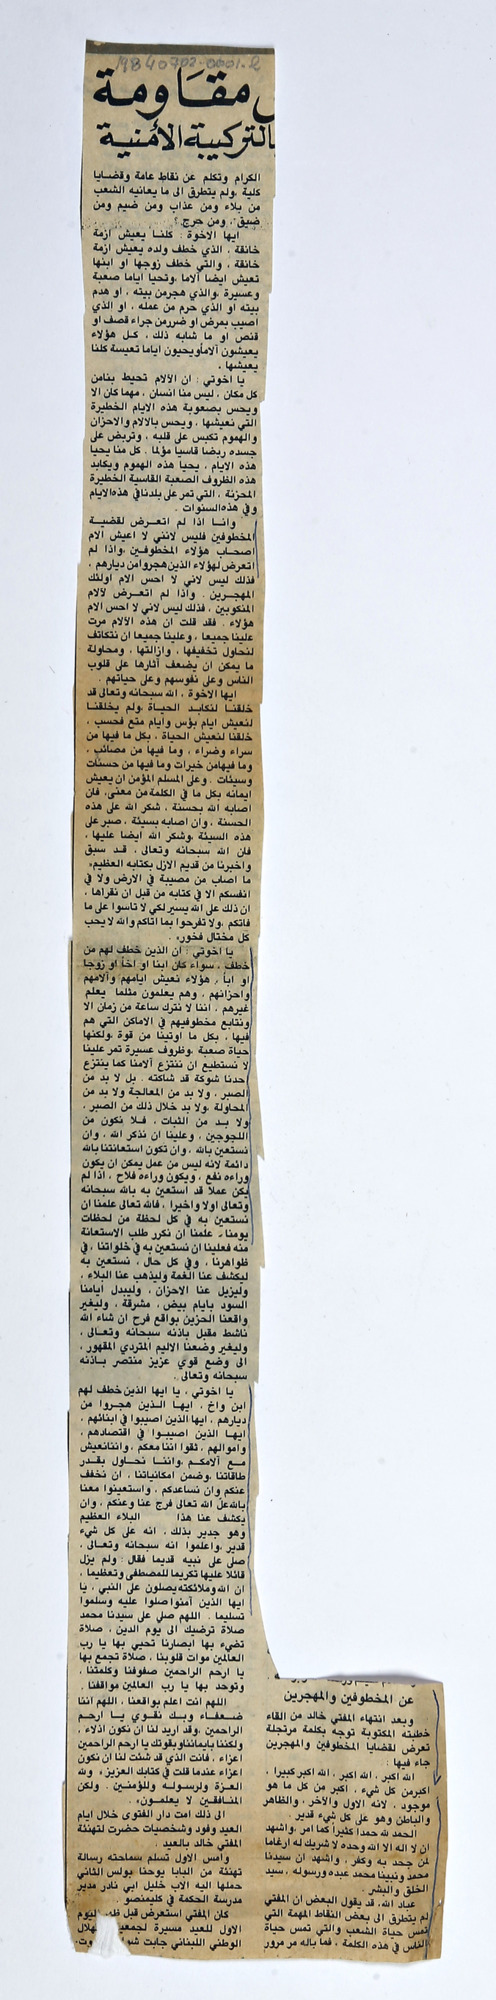 19840702-0001-2
ل مقاومة
بالتركيبة الأمنية
عن المخطوفين والمهجرين
وبعد انتهاء المفتي خالد من القاء
خطبته المكتوبة توجه بكلمة مرتجلة
تعرض لقضايا المخطوفين والمهجرين
جاء فيها :
الله اكبر ، الله اكبر ، الله اكبر كبيرا ،
اكبر من كل شيء ، اكبر من كل ما هو
موجود ، لانه الاول والآخر ، والظاهر
والباطن وهو على كل شيء قدير .
الحمد لله حمدا كثيرا كما امر ، واشهد
ان لا اله الا الله وحده لا شريك له ارغاما
لمن جحد به وكفر ، واشهد ان سيدنا
محمد ونبينا محمد عبده ورسوله ، سيد
الخلق والبشر .
عباد الله، قد يقول البعض ان المفتي
لم يتطرق الى بعض النقاط المهمة التي
تمس حياة الشعب والتي تمس حياة
الناس في هذه الكلمة ، فما باله مر مرور
الكرام وتكلم عن نقاط عامة وقضايا
كلية ،ولم يتطرق الى ما يعانيه الشعب
من بلاء ومن عذاب ومن ضيم ومن
ضيق ، ومن حرج ؟
ايها الاخوة : كلنا يعيش ازمة
خانقة ، الذي خطف ولده يعيش ازمة
خانقة ، والتي خطف زوجها او ابنها
تعيش ايضا آلاما ،وتحيا اياما صعبة
وعسيرة ،والذي هجرمن بيته ، او هدم
بيته او الذي حرم من عمله ، او الذي
اصيب بمرض او ضررمن جراء قصف او
قنص او ما شابه ذلك ، كل هؤلاء
يعيشون آلاماويحيون اياما تعيسة كلنا
يعيشها .
يا اخوتي : ان الآلام تحيط بنامن
كل مكان ، ليس منا انسان ، مهما كان الا
ويحس بصعوبة هذه الايام الخطيرة
التي نعيشها ، ويحس بالآلام والاحزان
والهموم تكبس على قلبه ، وتربض على
جسده ربضا قاسيا مؤلما . كل منا يحيا
هذه الايام ، يحيا هذه الهموم ويكابد
هذه الظروف الصعبة القاسية الخطيرة
المحزنة ، التي تمر على بلدنافي هذه الايام
وفي هذه السنوات .
وانا اذا لم اتعرض لقضية
المخطوفين فليس لانني لا اعيش الام
اصحاب هؤلاء المخطوفين ،واذا لم
اتعرض لهؤلاء الذين هجروا من ديارهم ،
فذلك ليس لاني لا احس الام اولئك
المهجرين . واذا لم اتعرض لآلام
المنكوبين ، فذلك ليس لاني لا احس الام
هؤلاء . فقد قلت ان هذه الآلام مرت
علينا جميعا ، وعلينا جميعا ان نتكاتف
لنحاول تخفيفها ، وازالتها ، ومحاولة
ما يمكن ان يضعف آثارها على قلوب
الناس وعلى نفوسهم وعلى حياتهم .
ايها الاخوة ، الله سبحانه وتعالى قد
خلقنا لنكابد الحياة ،ولم يخلقنا
لنعيش ايام بؤس وايام متع فحسب ،
خلقنا لنعيش الحياة ، بكل ما فيها من
سراء وضراء ، وما فيها من مصائب ،
وما فيهامن خيرات وما فيها من حسنات
وسيئات . وعلى المسلم المؤمن ان يعيش
ايمانه بكل ما في الكلمة من معنى، فان
اصابه الله بحسنة ، شكر الله على هذه
الحسنة ، وان اصابه بسيئة ، صبر على
هذه السيئة ،وشكر الله ايضا عليها ،
فان الله سبحانه وتعالى ، قد سبق
واخبرنا من قديم الازل بكتابه العظيم«
ما اصاب من مصيبة في الارض ولا في
انفسكم الا في كتابه من قبل ان نقراها ،
ان ذلك على الله يسير لكي لا تاسوا على ما
فاتكم ،ولا تفرحوا بما آتاكم والله لا يحب
كل مختال فخور» .
يا اخوتي : ان الذين خطف لهم من
خطف ، سواء كان ابنا او اخا او زوجا
او ابا ، هؤلاء نعيش ايامهم وآلامهم
واحزانهم ، وهم يعلمون مثلما يعلم
غيرهم ، اننا لا نترك ساعة من زمان الا
ونتابع مخطوفيهم في الاماكن التي هم
فيها ، بكل ما اوتينا من قوة ،ولكنها
حياة صعبة ،وظروف عسيرة تمر علينا
لا نستطيع ان ننتزع آلامنا كما ينتزع
احدنا شوكة قد شاكته . بل لا بد من
الصبر ، ولا بد من المعالجة ولا بد من
المحاولة ،ولا بد خلال ذلك من الصبر ،
ولا بد من الثبات ، فلا نكون من
اللجوجين ، وعلينا ان نذكر الله ، وان
نستعين بالله ، وان تكون استعانتنا بالله
دائمة لانه ليس من عمل يمكن ان يكون
وراءه نفع ، ويكون وراءه فلاح ، اذا لم
يكن عملا قد استعين به بالله سبحانه
وتعالى اولا واخيرا ، فالله تعالى علمنا ان
نستعين به في كل لحظة من لحظات
يومنا ، علمنا ان نكرر طلب الاستعانة
منه فعلينا ان نستعين به في خلواتنا ، في
ظواهرنا ، وفي كل حال ، نستعين به
ليكشف عنا الغمة وليذهب عنا البلاء ،
وليزيل عنا الاحزان ، وليبدل ايامنا
السود بايام بيض ، مشرقة ، وليغير
واقعنا الحزين بواقع فرح ان شاء الله
ناشط مقبل باذنه سبحانه وتعالى ،
وليغير وضعنا الاليم المتردي المقهور ،
الى وضع قوي عزيز منتصر باذنه
سبحانه وتعالى .
يا اخوتي ، يا ايها الذين خطف لهم
ابن واخ ، ايها الذين هجروا من
ديارهم ، ايها الذين اصيبوا في ابنائهم ،
ايها الذين اصيبوا في اقتصادهم ،
واموالهم ، ثقوا اننا معكم ، واننانعيش
مع آلامكم ،واننا نحاول بقدر
طاقاتنا ،وضمن امكانياتنا ، ان نخفف
عنكم وان نساعدكم ، واستعينوا معنا
بالله علّ الله تعالى فرج عنا وعنكم ، وان
يكشف عنا هذا البلاء العظيم
وهو جدير بذلك ، انه على كل شيء
قدير ،واعلموا انه سبحانه وتعالى ،
صلى على نبيه قديما فقال : ولم يزل
قائلا عليها تكريما للمصطفى وتعظيما ،
ان الله وملائكته يصلون على النبي ، يا
ايها الذين آمنوا صلوا عليه وسلموا
تسليما . اللهم صلي على سيدنا محمد
صلاة ترضيك الى يوم الدين ، صلاة
تضيء بها ابصارنا تحيي بها يا رب
العالمين موات قلوبنا ، صلاة تجمع بها
يا ارحم الراحمين صفوفنا وكلمتنا ،
وتوحد بها يا رب العالمين مواقفنا .
اللهم انت اعلم بواقعنا ، اللهم اننا
ضعفاء وبك نقوي يا ارحم
الراحمين ،وقد اريد لنا ان نكون اذلاء ،
ولكننا بايماننا وبقوتك يا ارحم الراحمين
اعزاء ، فانت الذي قد شئت لنا ان نكون
اعزاء عندما قلت في كتابك العزيز ، ولله
العزة ولرسوله وللمؤمنين . ولكن
المنافقين لا يعلمون» .
الى ذلك امت دار الفتوى خلال ايام
العيد وفود وشخصيات حضرت لتهنئة
المفتي خالد بالعيد .
وامس الاول تسلم سماحته رسالة
تهنئة من البابا يوحنا بولس الثاني
حملها اليه الاب خليل ابي نادر مدير
مدرسة الحكمة في كليمنصو .
كان المفتي استعرض قبل ظهر اليوم
الاول للعيد مسيرة لجمعية
الوطني اللبناني جابت